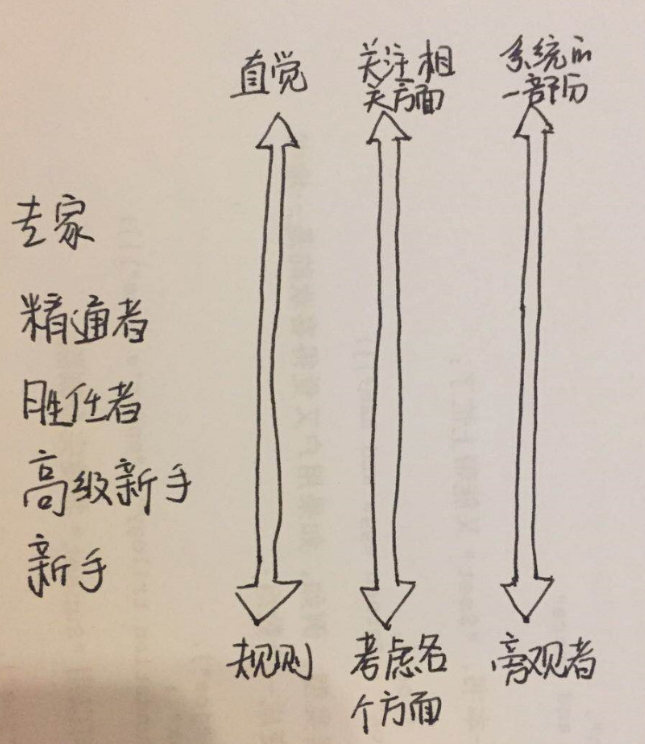 直觉
关注相
关方面
系统的
一部分
专家
精通者
胜任者
高级新手
新手
规则
考虑各
个方面
旁观者